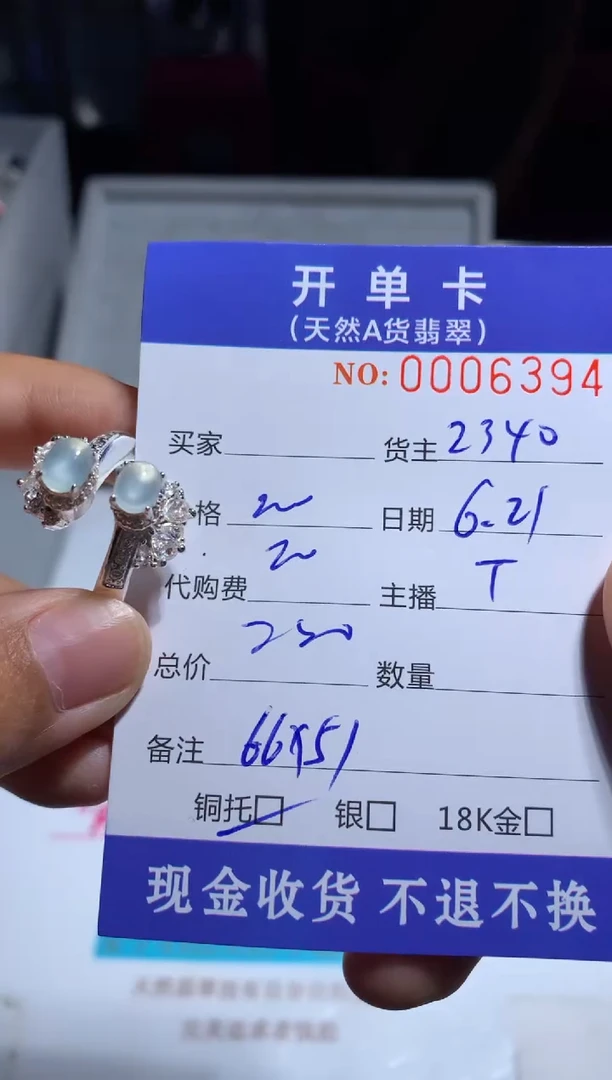 开单卡
(天然A货翡翠)
NO: 0006394
买家 货主 2340
格 日期 6.21
代购费 主播 T
总价 250 数量
备注 66×51
铜托□ 银□ 18K金□
现金收货 不退不换